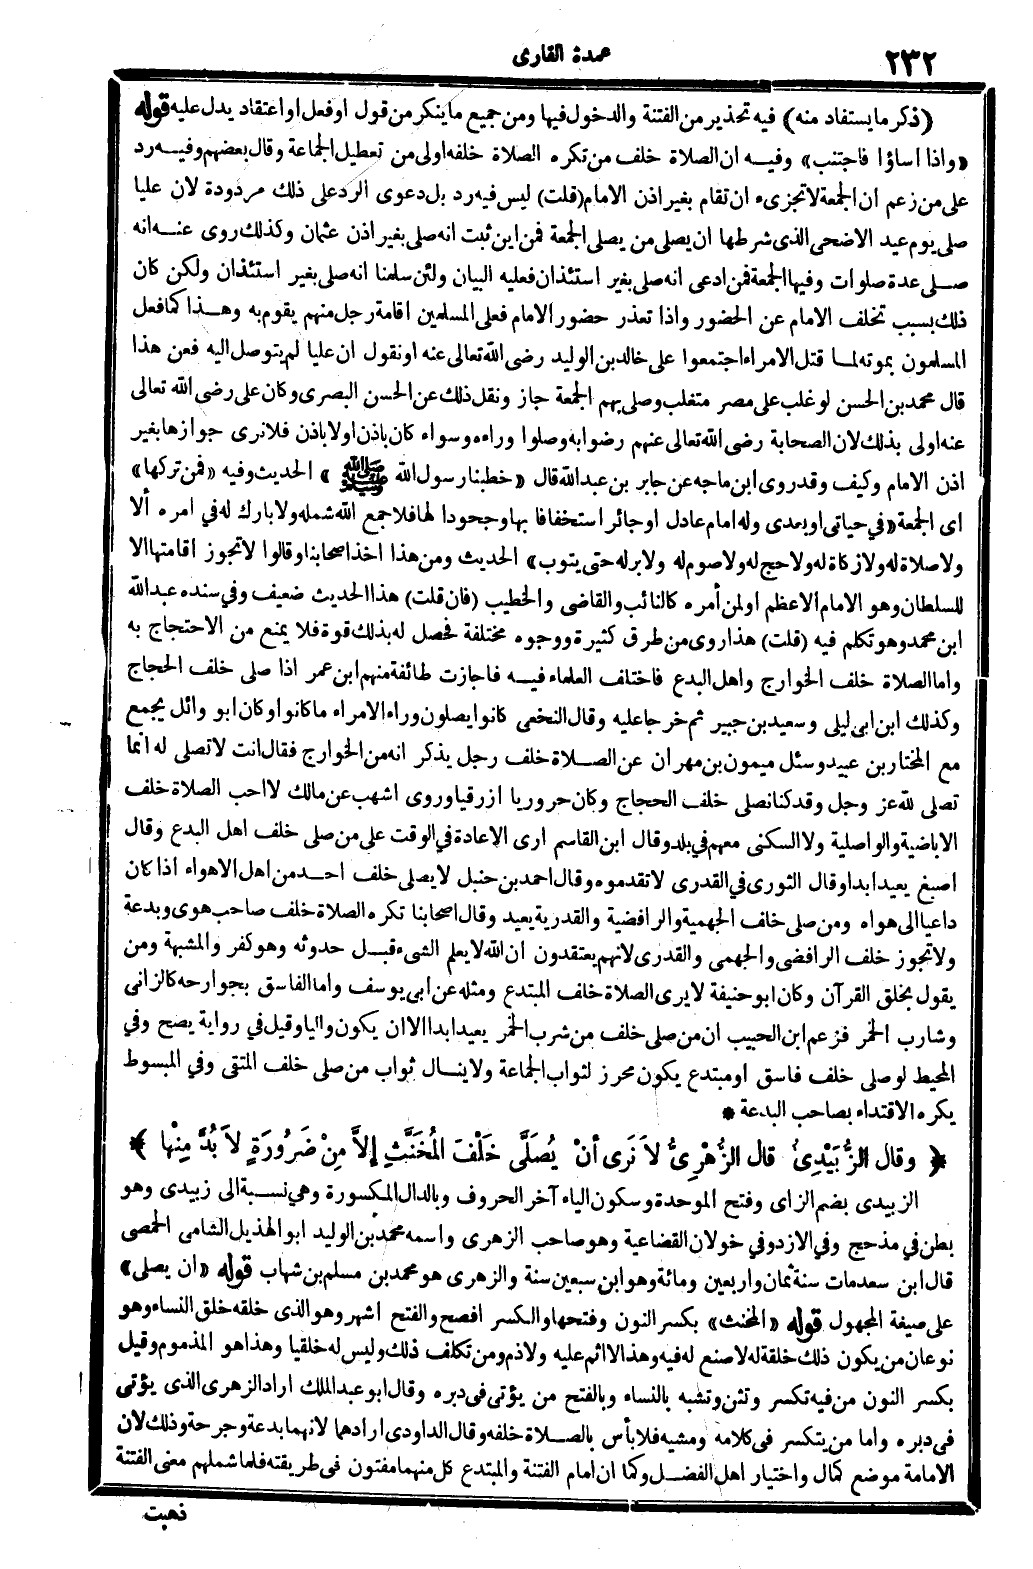 ٢٣٢
عمدة القارى
(ذكر مايستفاد منه) فيه تحذير من الفتنة والدخول فيها ومن جميع ما ينكر من قول او فعل او اعتقاد يدل عليه قوله
«واذا اساؤا فاجتنب» وفيه ان الصلاة خلف من تكره الصلاة خلفه اولى من تعطيل الجماعة وقال بعضهم وفيه رد
على من زعم ان الجمعة لا تجزىء ان تقام بغير اذن الامام (قلت) ليس فيه رد بل دعوى الرد على ذلك مردودة لان عليا
صلى يوم عيد الاضحى الذى شرطها ان يصلى من يصلى الجمعة فمن اين ثبت انه صلى بغير اذن عثمان وكذلك روى عنه انه
صلى عدة صلوات وفيها الجمعة فمن ادعى انه صلى بغير استئذان فعليه البيان ولئن سلمنا انه صلى بغير استئذان ولكن كان
ذلك بسبب تخلف الامام عن الحضور واذا تعذر حضور الامام فعلى المسلمين اقامة رجل منهم يقوم به وهذا كما فعل
المسلمون بموته لما قتل الامراء اجتمعوا على خالد بن الوليد رضى الله تعالى عنه او نقول ان عليا لم يتوصل اليه فعن هذا
قال محمد بن الحسن لو غلب على مصر متغلب وصلى بهم الجمعة جاز ونقل ذلك عن الحسن البصرى وكان على رضى الله تعالى
عنه اولى بذلك لان الصحابة رضى الله تعالى عنهم رضوا به وصلوا وراءه وسواء كان باذن اولا باذن فلا نرى جوازها بغير
اذن الامام وكيف وقد روى ابن ماجه عن جابر بن عبد الله قال «خطبنا رسول الله ﷺ» الحديث وفيه «فمن تركها»
اى الجمعة «فى حياتى او بعدى وله امام عادل او جائر استخفافا بها وجحودا لها فلا جمع الله شمله ولا بارك له فى امره ألا
ولا صلاة له ولا زكاة له ولا حج له ولا صوم له ولا بر له حتى يتوب» الحديث ومن هذا اخذ اصحابنا وقالوا لا تجوز اقامتها الا
للسلطان وهو الامام الاعظم او لمن أمره كالنائب والقاضى والخطيب (فان قلت) هذا الحديث ضعيف وفى سنده عبد الله
ابن محمد وهو تكلم فيه (قلت) هذا روى من طرق كثيرة ووجوه مختلفة فحصل له بذلك قوة فلا يمنع من الاحتجاج به
واما الصلاة خلف الخوارج واهل البدع فاختلف العلماء فيه فاجازت طائفة منهم ابن عمر اذا صلى خلف الحجاج
وكذلك ابن ابى ليلى وسعيد بن جبير ثم خرجا عليه وقال النخعى كانوا يصلون وراء الامراء ما كانوا وكان ابو وائل يجمع
مع المختار بن عبيد وسئل ميمون بن مهران عن الصلاة خلف رجل يذكر انه من الخوارج فقال انت لا تصلى له انما
تصلى لله عز وجل وقد كنا نصلى خلف الحجاج وكان حروريا ازرقيا وروى اشهب عن مالك لا احب الصلاة خلف
الاباضية والواصلية ولا السكنى معهم فى بلد وقال ابن القاسم ارى الاعادة فى الوقت على من صلى خلف اهل البدع وقال
اصبغ يعيد ابدا وقال الثورى فى القدرى لا تقدموه وقال احمد بن حنبل لا يصلى خلف احد من اهل الاهواء اذا كان
داعيا الى هواه ومن صلى خلف الجهمية والرافضية والقدرية يعيد وقال اصحابنا تكره الصلاة خلف صاحب هوى وبدعة
ولا تجوز خلف الرافضى والجهمى والقدرى لانهم يعتقدون ان الله لا يعلم الشىء قبل حدوثه وهو كفر والمشبهة ومن
يقول بخلق القرآن وكان ابو حنيفة لا يرى الصلاة خلف المبتدع ومثله عن ابى يوسف واما الفاسق بجوارحه كالزانى
وشارب الخمر فزعم ابن الحبيب ان من صلى خلف من شرب الخمر يعيد ابدا الا ان يكون واليا وقيل فى رواية يصح وفى
المحيط لو صلى خلف فاسق او مبتدع يكون محرز لثواب الجماعة ولا ينال ثواب من صلى خلف المتقى وفى المبسوط
يكره الاقتداء بصاحب البدعة *
﴿ وقال الزُّبَيْدِىُّ قال الزُّهْرِىُّ لاَ نَرَى أنْ يُصَلَّى خَلْفَ المُخَنَّثِ إلاَّ مِنْ ضَرُورَةٍ لاَ بُدَّ مِنْها ﴾
الزبيدى بضم الزاى وفتح الموحدة وسكون الياء آخر الحروف وبالدال المكسورة وهى نسبة الى زبيدى وهو
بطن فى مذحج وفى الازد وفى خولان القضاعية وهو صاحب الزهرى واسمه محمد بن الوليد ابو الهذيل الشامى الحمصى
قال ابن سعد مات سنة ثمان واربعين ومائة وهو ابن سبعين سنة والزهرى هو محمد بن مسلم بن شهاب قوله «ان يصلى»
على صيغة المجهول قوله «المخنث» بكسر النون وفتحها والكسر افصح والفتح اشهر وهو الذى خلقه خلق النساء وهو
نوعان من يكون ذلك خلقة له لا صنع له فيه وهذا لا اثم عليه ولا ذم ومن تكلف ذلك وليس له خلقيا وهذا هو المذموم وقيل
بكسر النون من فيه تكسر وتثن وتشبه بالنساء وبالفتح من يؤتى فى دبره وقال ابو عبد الملك اراد الزهرى الذى يؤتى
فى دبره واما من يتكسر فى كلامه ومشيه فلا بأس بالصلاة خلفه وقال الداودى ارادهما لانهما بدعة وجرحة وذلك لان
الامامة موضع كمال واختيار اهل الفضل وكما ان امام الفتنة والمبتدع كل منهما مفتون فى طريقته فلما شملهم معنى الفتنة
ذهبت